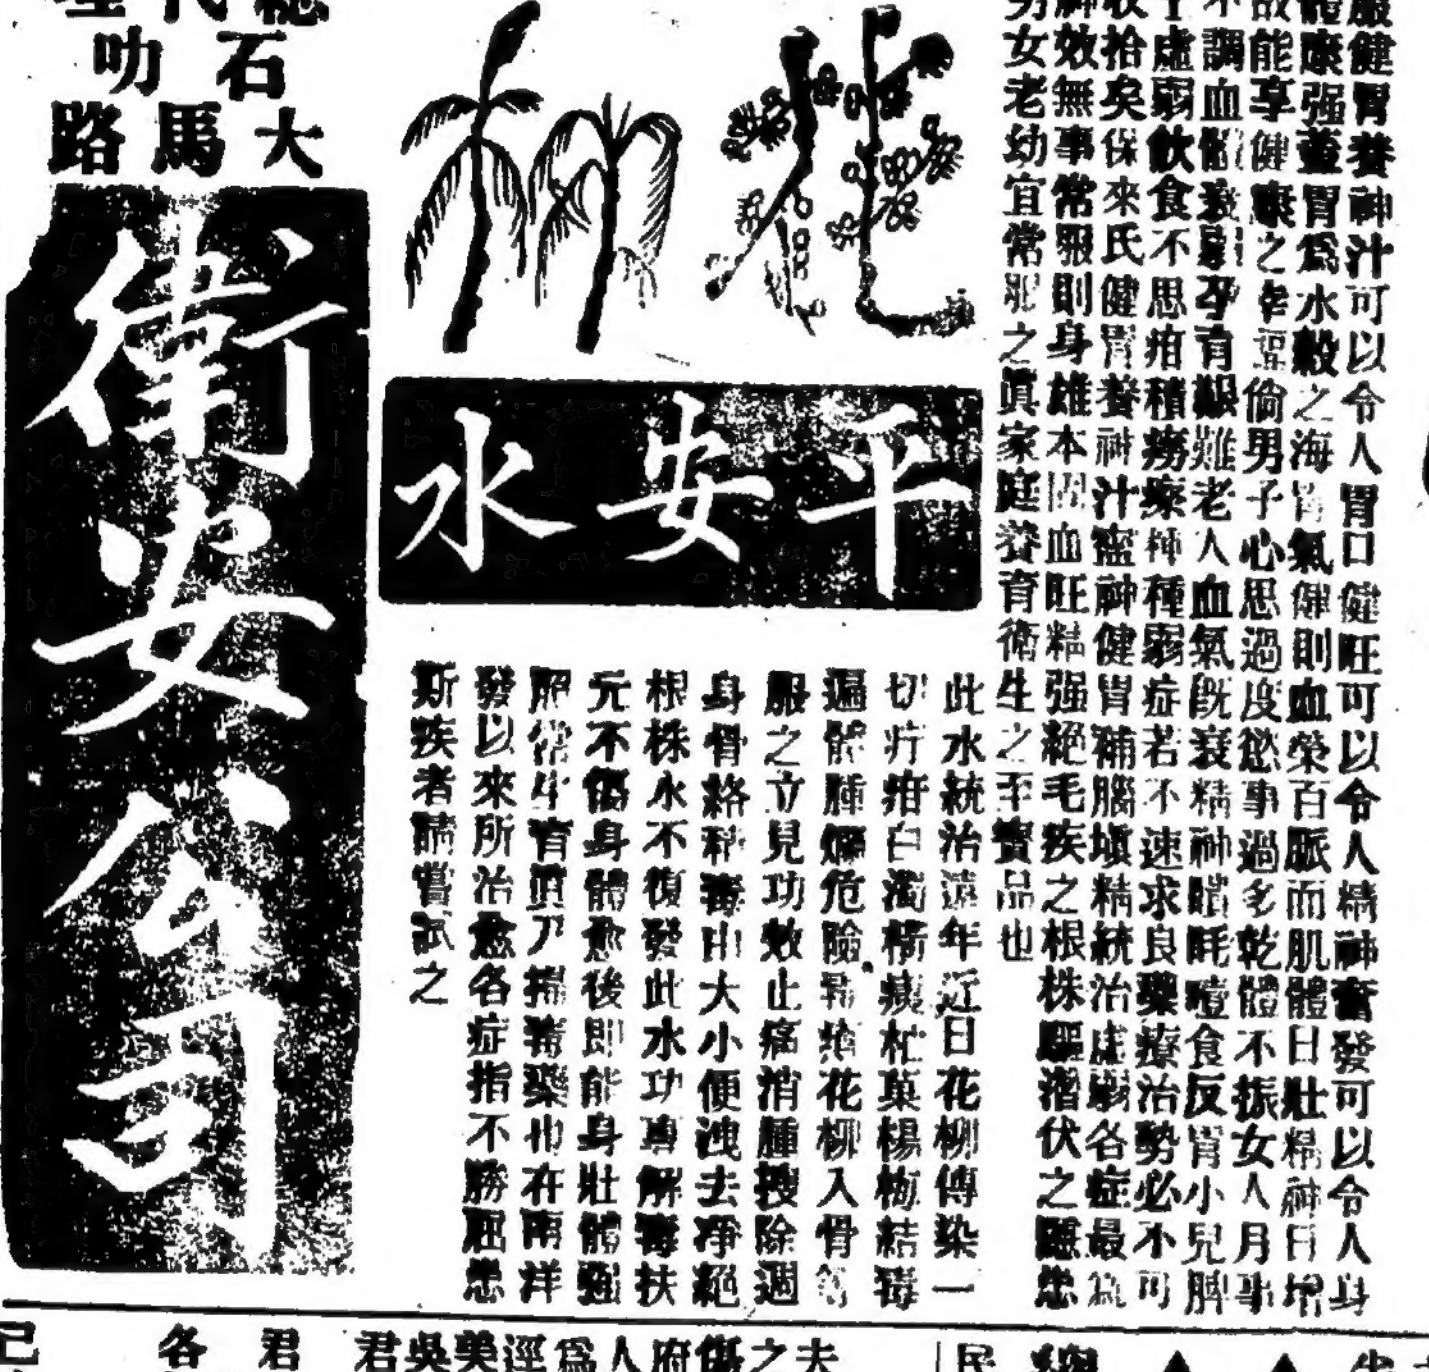 服健胃養神汁可以令人胃口健旺可以令人精神奮發可以令人身
體康强蓋胃爲水穀之海胃氣健則血榮百脈而肌體日壯精神日增
故能享健康之幸福倘男子心思過度慾事過多乾體不振女人月事
不調血髒衰孕育艱難老人血氣旣衰精神暗眊噎食反胃小兒脾
虛弱飲食不思疳積癆瘵種種弱症若不速求良藥療治勢必不可
收拾矣保來氏健胃養神汁寧神健胃補腦塡精統治虛弱各症最爲
神效無事常服則身雄本固血旺精强絕毛疾之根株驅潛伏之隱患
男女老幼宜常服之眞家庭養育衛生之至寶品也
花柳
平安水
此水統治遠年近日花柳傳染一
切疔疳白濁橫痃杧菓楊梅結毒
遍體腫爛危險霉瘡花柳入骨等
服之立見功效止痛消腫搜除週
身骨絡積毒由大小便洩去凈絕
根株永不復發此水功專解毒扶
元不傷身體愈後即能身壯體强
肥常生育眞乃掃毒藥也在南洋
發以來所治愈各症指不勝屈患
斯疾者請嘗試之
總代理
石叻
大馬路
衛安公司
夫之傷府人爲涇美吳君
君
各
民